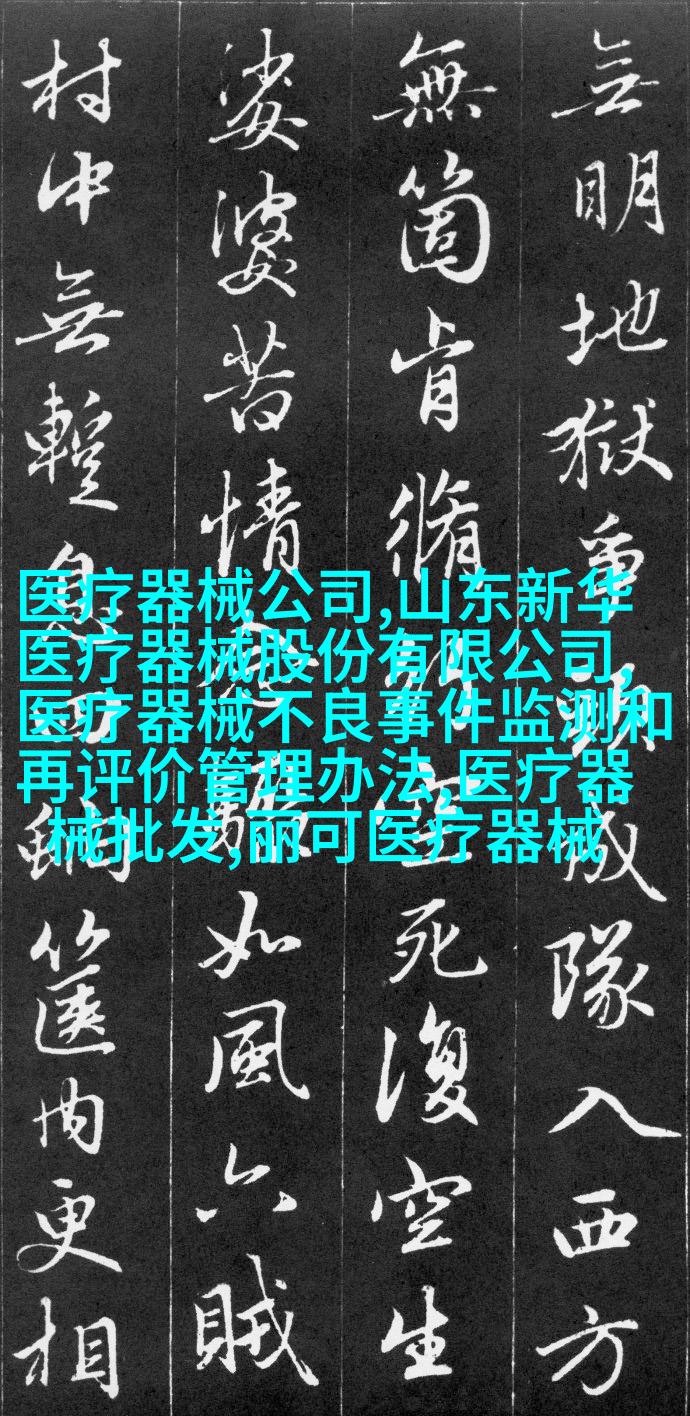 無明地獄爭頭成隊入西方
無箇肯脩行空死復空生
娑婆苦情念驟如風六賊
村中無蹔息四虵篋内更相
医疗器械公司,山东新华
医疗器械股份有限公司,
医疗器械不良事件监测和
再评价管理办法,医疗器
械批发,丽可医疗器械